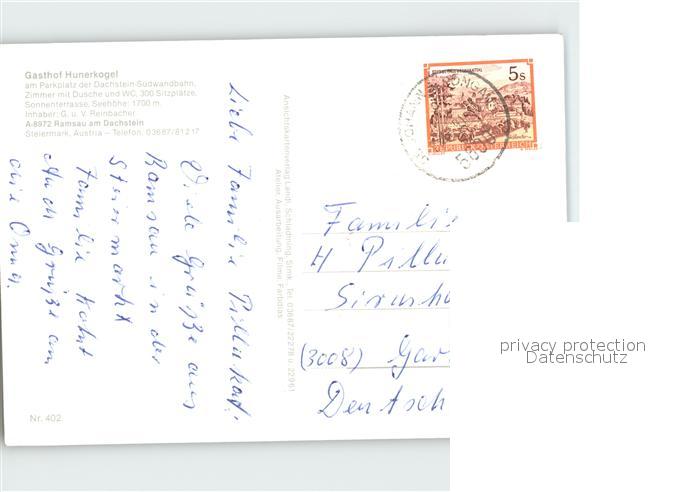 Gasthof Hunerkogel
am Parkplatz der Dachstein-Südwandbahn,
Zimmer mit Dusche und WC, 300 Sitzplätze,
Sonnenterrasse, Seehöhe: 1700 m.
Inhaber: G. u. V. Reinbacher
A-8972 Ramsau am Dachstein
Steiermark, Austria – Telefon, 03687/81217
Liebe Familie
Viele Grüße aus
Ramsau in der
Steiermarkt
Familie
Auch Grüße an
die Oma.
Nr. 402
Ansichtskartenverlag Landl, Schladming, Stmk., Tel. 03687/22278 u. 22961
Atelier Ausarbeitung, Filme, Farbdias
5s
REPUBLIK ÖSTERREICH
Familie
H Pillu
(3008) Gar
Deutsch
privacy protection
Datenschutz